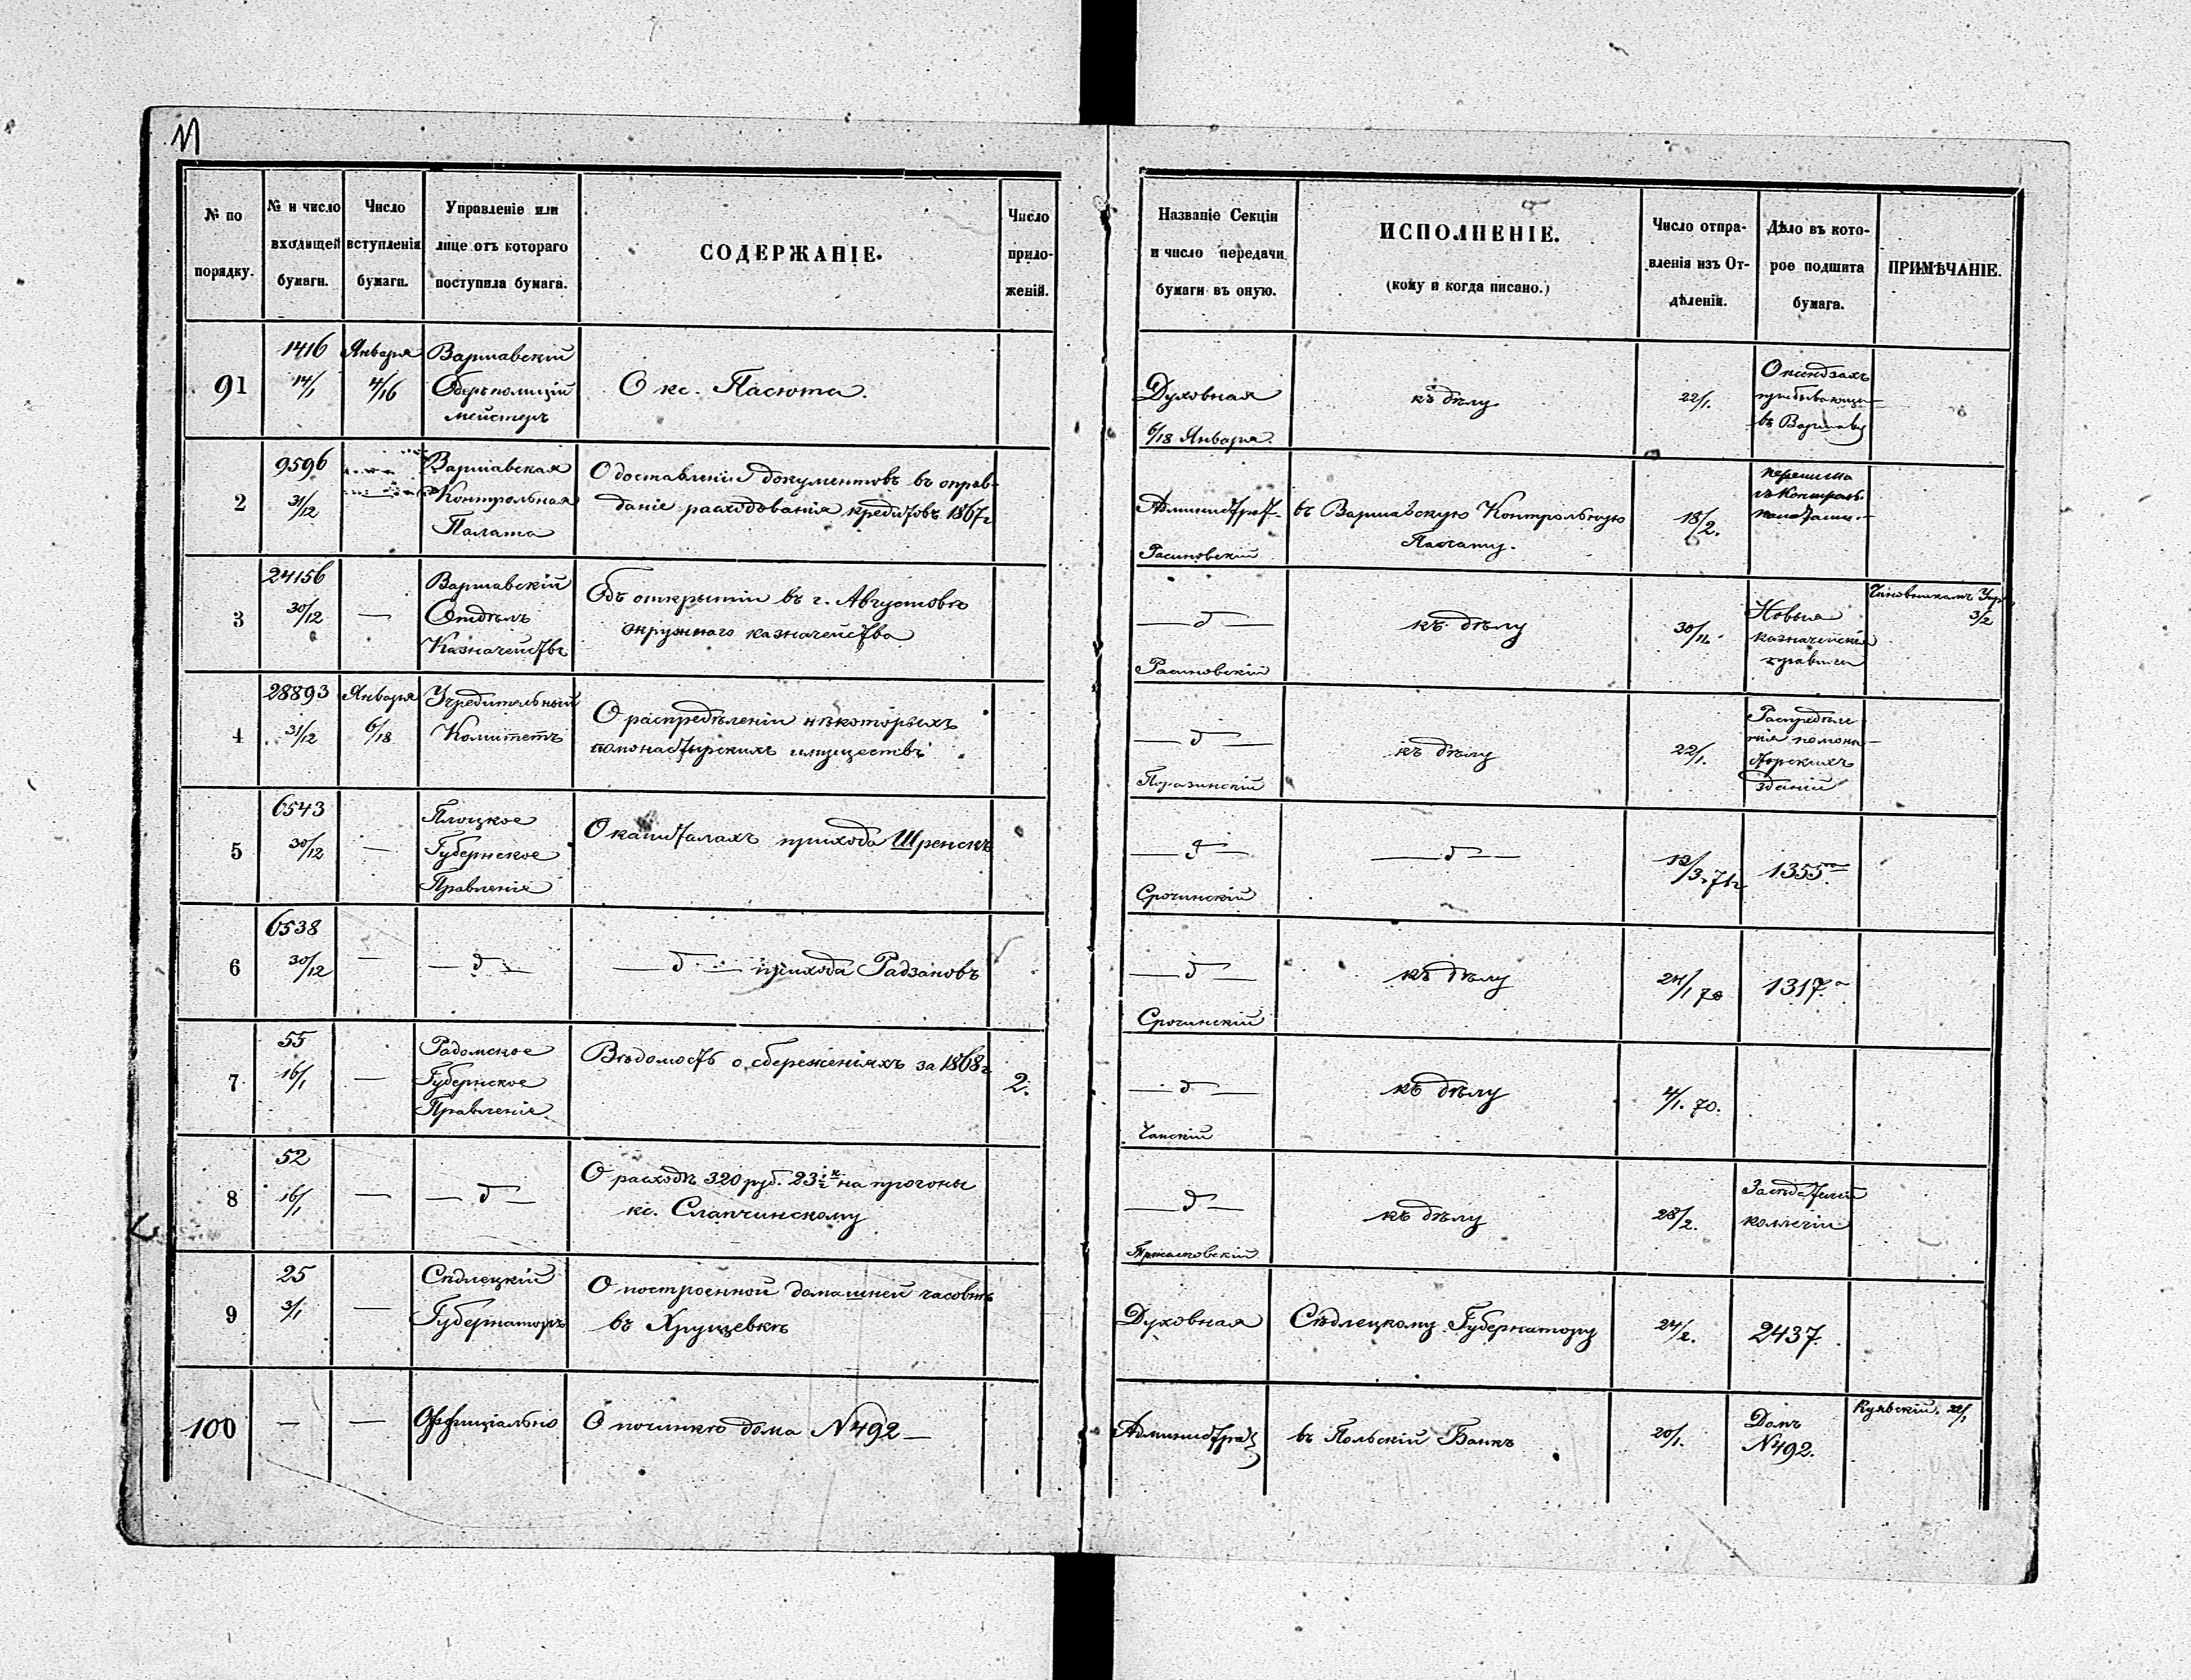 № по порядку.
№ и число входящей бумаги.
Число вступленія бумаги.
Управленіе или лице отъ котораго поступила бумага.
СОДЕРЖАНІЕ.
Число прило-
женій.
Названіе Секціи и число передачи бумаги въ оную.
ИСПОЛНЕНІЕ.
(кому и когда писано.)
Число отпра-
вленія изъ От-
дѣленія.
Дѣло въ кото-
рое подшита
бумага.
ПРИМѢЧАНІЕ.
91
1416
14/1
Января
4/16
Варшавскій
Оберъполицій
мейстеръ
О кс. Пасюта.
Духовная
6/18 Января.
къ дѣлу
22/1.
О ксендзахъ
въ Варшавѣ
2
9596
31/12
Варшавская
Контрольная
Палата
О доставленіи документовъ въ оправ-
даніе расходованія кредитовъ 1867 г
Администрат-
въ Варшавскую Контрольную
Палату.
18/2.
3
24156
30/12
—
Варшавскій
Отдѣлъ
Казначействъ
Объ открытіи въ г. Августовѣ
окружнаго казначейства
— д —
къ дѣлу
Новыя
казначейскія
правила
3/2
4
28893
31/12
Января
6/18
Учредительный
Комитетъ
О распредѣленіи нѣкоторыхъ
помонастырскихъ имуществъ
— д —
къ дѣлу
22/1.
Распредѣле
нія помона-
стырскихъ
зданій
5
6543
30/12
—
Плоцкое
Губернское
Правленіе
О капиталахъ прихода Шренскъ
— д —
Срочинскій
— д —
1355
6
6538
30/12
—
— д —
— д — прихода Радзановъ
— д —
Срочинскій
къ дѣлу
24/1 70
1317
7
55
16/1
—
Радомское
Губернское
Правленіе
Вѣдомость о сбереженіяхъ за 1868 г
2.
— д —
къ дѣлу
4/1. 70.
8
52
16/1
—
— д —
О расходѣ 320 руб. 23 1/2 к. на прогоны
кс. Слапчинскому
— д —
къ дѣлу
28/2.
Засѣдателей
коллегіи
9
25
3/1
—
Сѣдлецкій
Губернаторъ
О построенной домашней часовнѣ
въ Хрущевкѣ
Духовная
Сѣдлецкому Губернатору
24/2.
2437.
100
—
—
Оффиціально
О починкѣ дома N 492 —
Администрат
въ Польскій Банкъ
20/1.
Домъ
N 492.